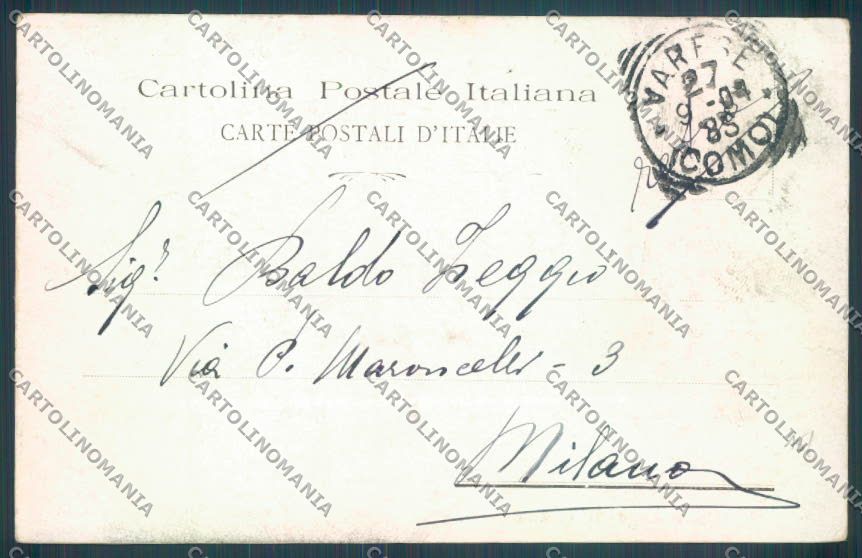 Cartolina Postale Italiana
CARTE POSTALI D'ITALIE
VARESE
27
9-04
(COMO)
Sigr. Baldo Zeggio
Via P. Maroncelli - 3
Milano
CARTOLINOMANIA